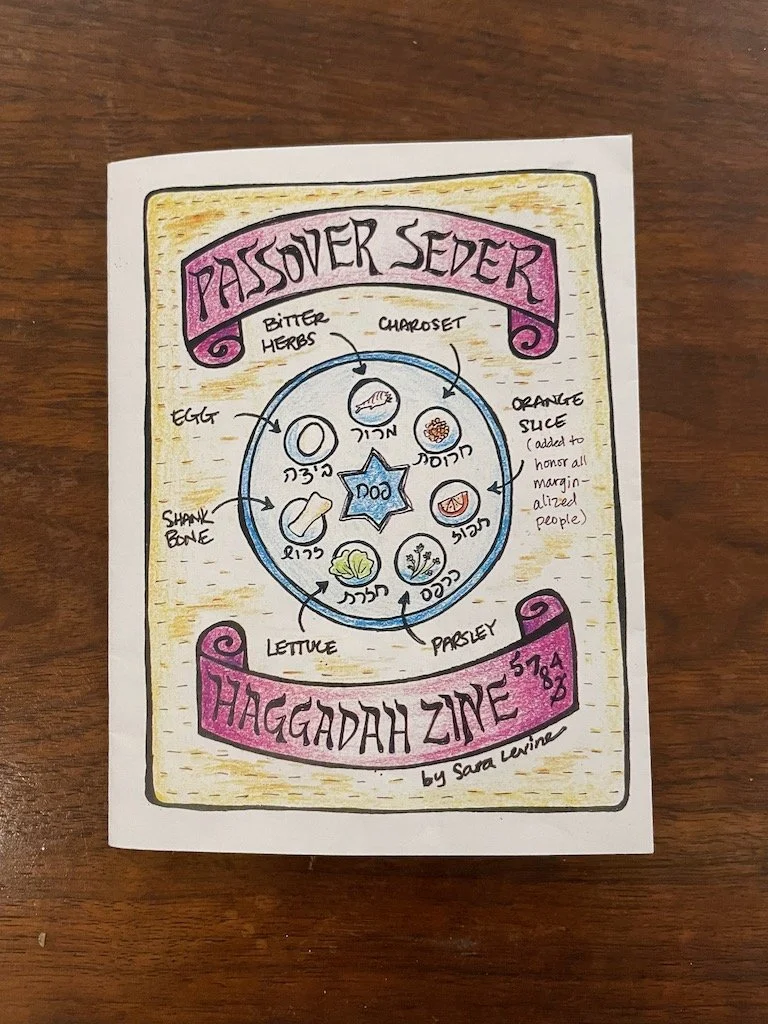 PASSOVER SEDER
BITTER
HERBS
CHAROSET
EGG
ORANGE
SLICE
(added to
honor all
margin-
alized
people)
מרור
חרוסת
ביצה
פסח
תפוז
SHANK
BONE
זרוע
חזרת
כרפס
LETTUCE
PARSLEY
HAGGADAH ZINE
578
by Sara Levine